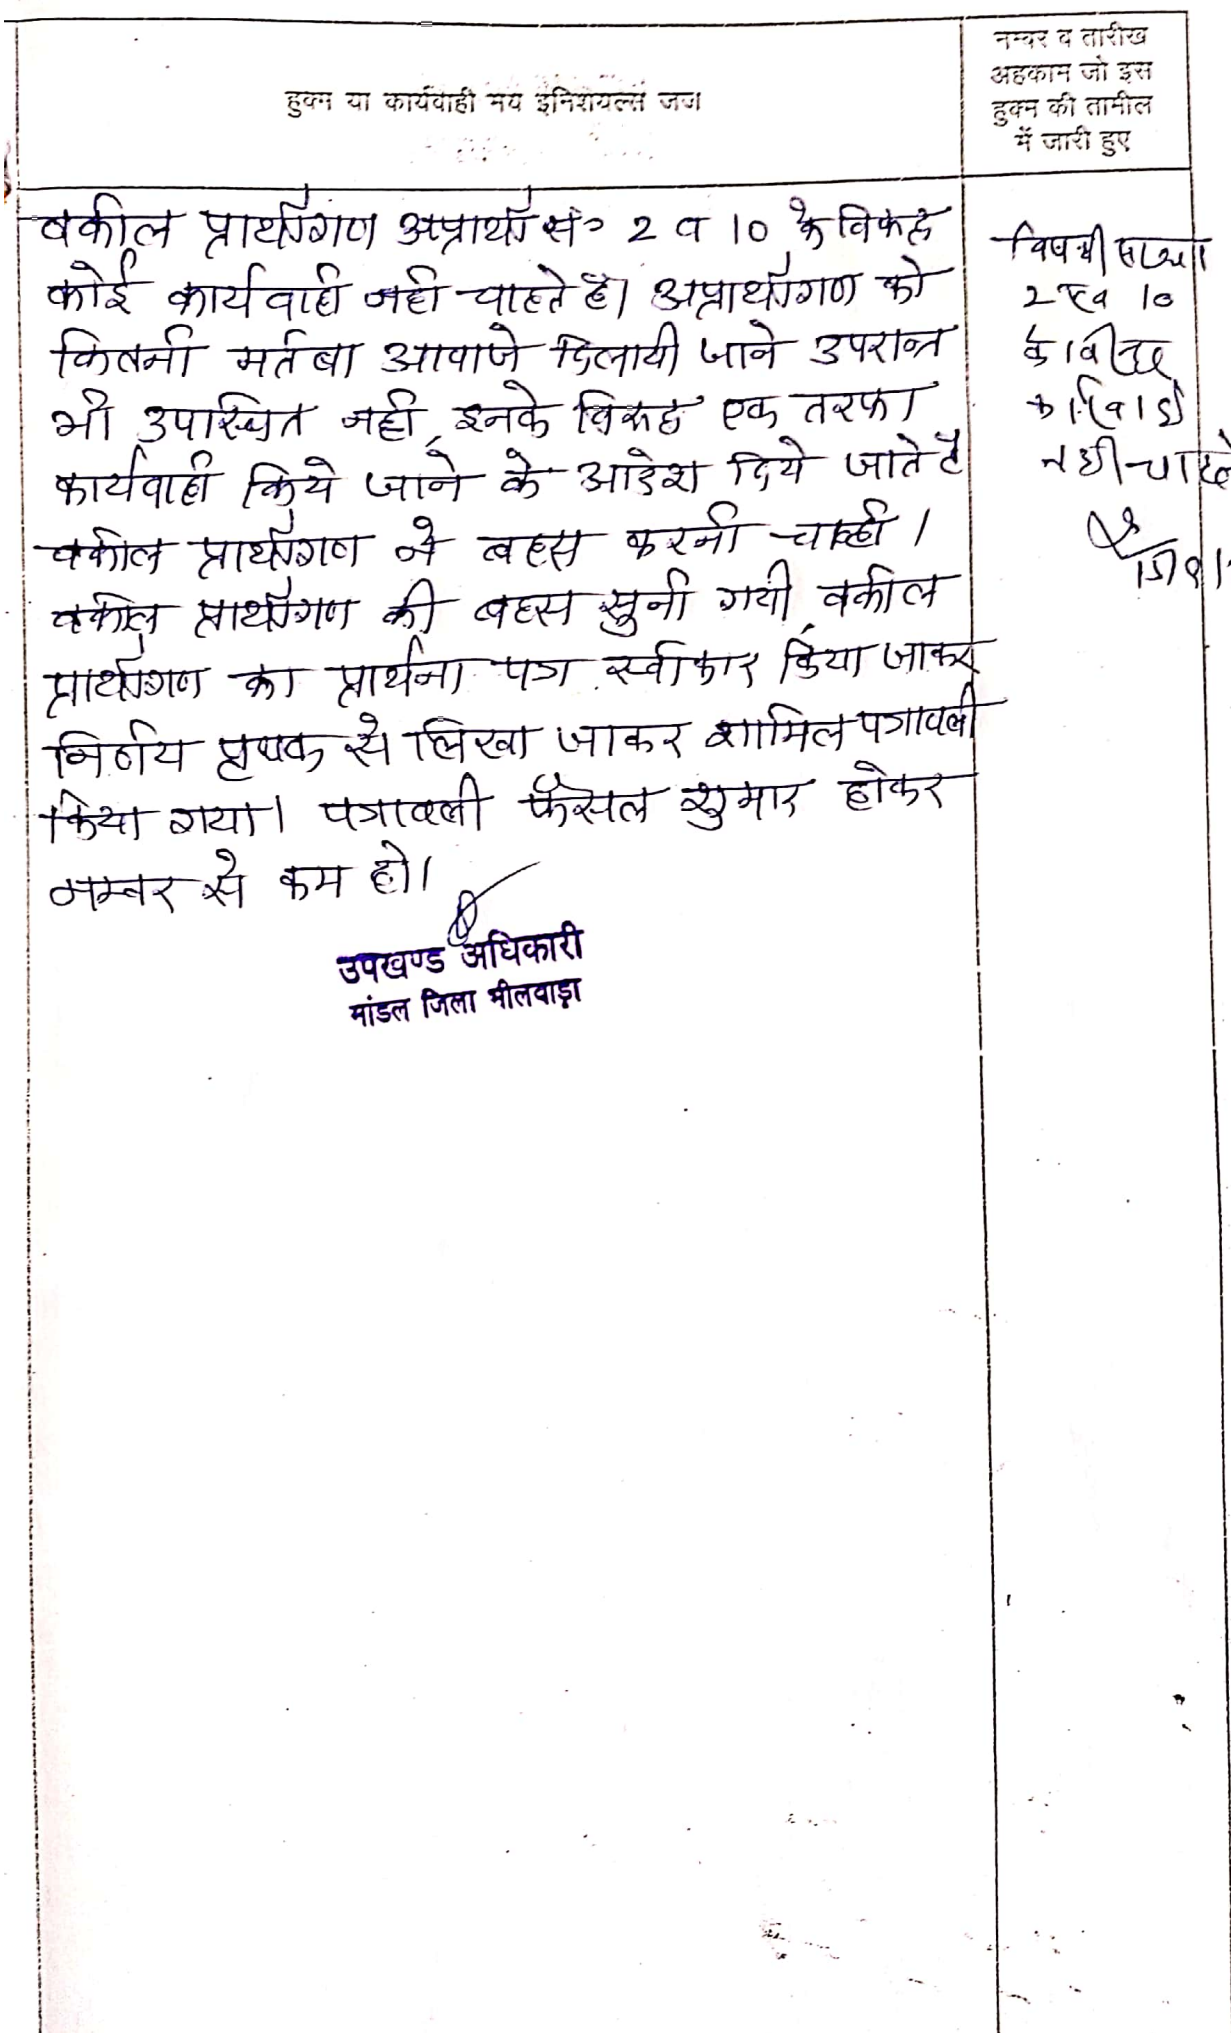 हुक्म या कार्यवाही मय इनिशियल्स जज
नम्बर व तारीख
अहकाम जो इस
हुक्म की तामील
में जारी हुए
वकील प्रार्थीगण अप्रार्थी सं० 2 व 10 के विरूद्ध
कोई कार्यवाही नही चाहते है। अप्रार्थीगण को
कितनी मर्तबा आवाजे दिलायी जाने उपरान्त
भी उपस्थित नही, इनके विरूद्ध एक तरफा
कार्यवाही किये जाने के आदेश दिये जाते है
वकील प्रार्थीगण ने बहस करनी चाही।
वकील प्रार्थीगण की बहस सुनी गयी, वकील
प्रार्थीगण का प्रार्थना पत्र स्वीकार किया जाकर
निर्णय पृथक से लिखा जाकर शामिल पत्रावली
किया गया। पत्रावली फैसल शुमार होकर
नम्बर से कम हो।
उपखण्ड अधिकारी
मांडल जिला भीलवाड़ा
विपक्षी संख्या
2 एव 10
के विरूद्ध
कार्रवाई
नही चाहते